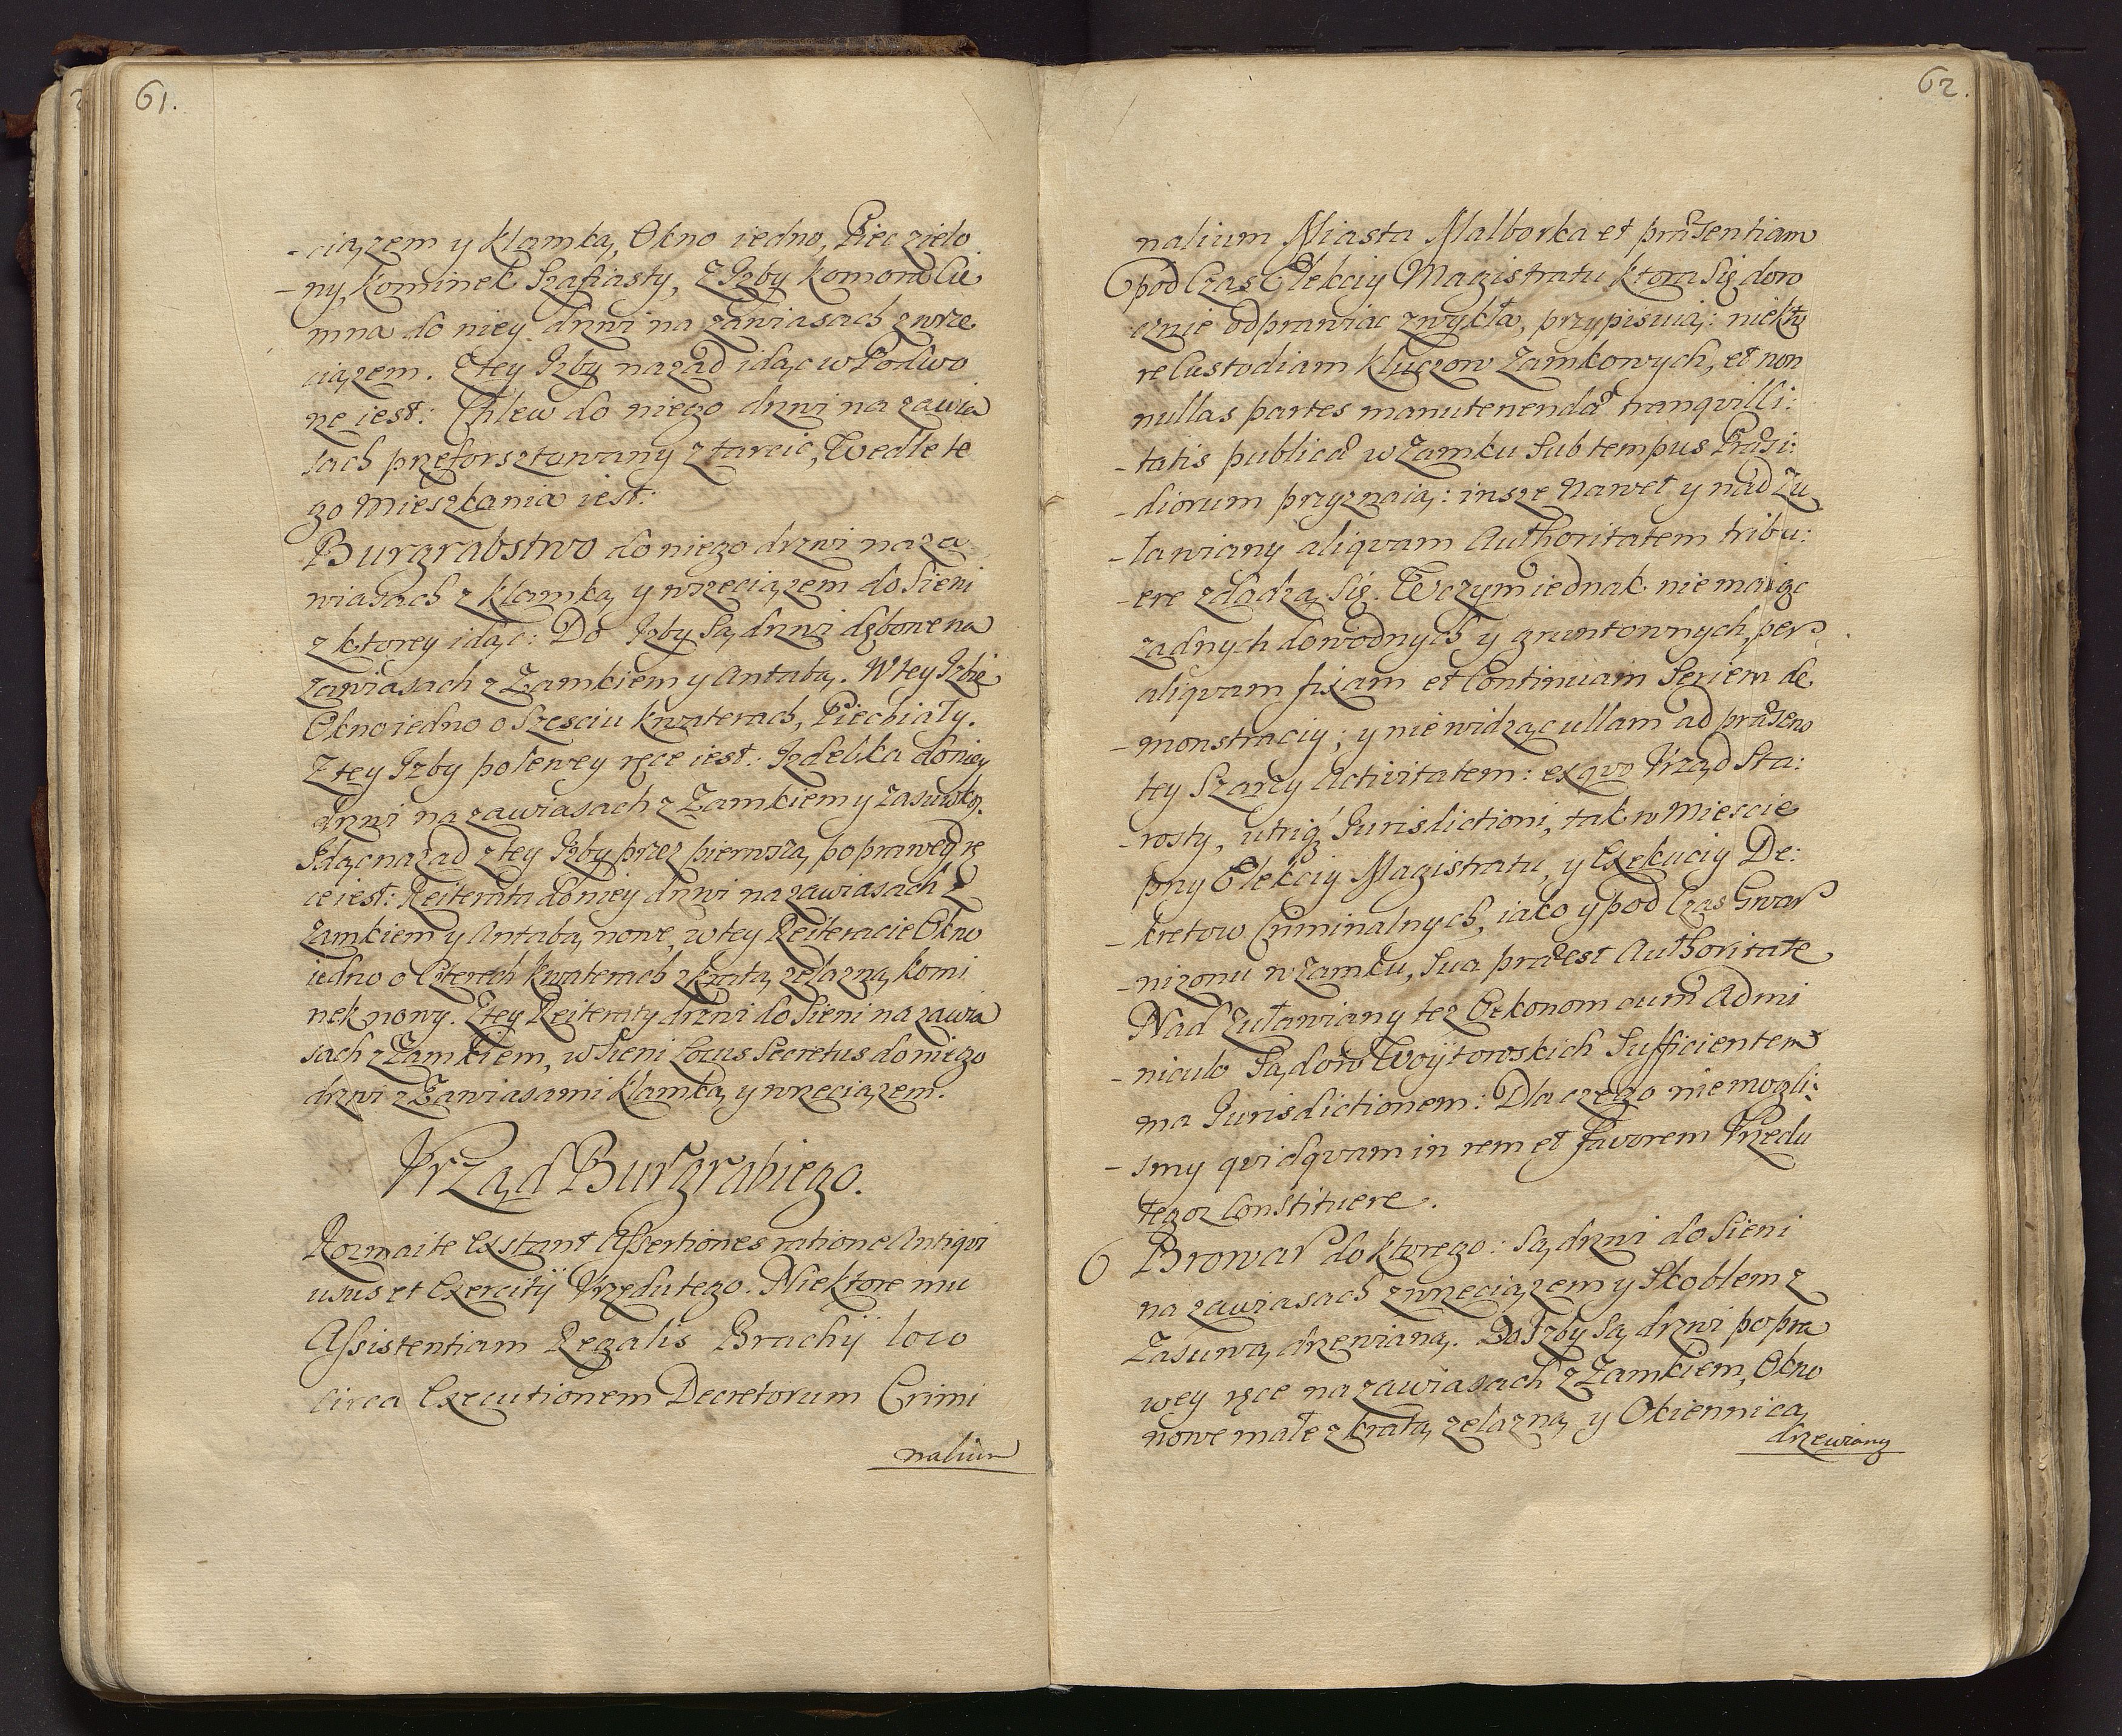 61.
-ciązem y klamką, Okno iedno, Piec zielo
-ny, Kominek Szafiasty, Z Izby komora Cie
mna do niey drzwi na zawiasach z wrze
ciązem. Z tey Izby nazad idąc w Podwo
rze iest: Chlew do niego drzwi na zawia
sach przeforsztowany z tarcic, Wedle te
go Mieszkania iest:
Burgrabstwo do niego drzwi na za
wiasach z klamką y wrzeciązem do Sieni
z ktorey idąc: Do Izby są drzwi dębowe na
zawiasach z Zamkiem y Antabą. W tey Izbie
Okno iedno o Szesciu kwaterach, Piec biały.
Z tey Izby po lewey ręce iest: Izdebka do niey
drzwi na zawiasach z Zamkiem y zasuwką.
Idąc nazad z tey Izby przez pierwszą, po prawey rę
ce iest: Reiterata do niey drzwi na zawiasach z
Zamkiem y Antabą nowe, w tey Reiteracie Okno
iedno o Czterech kwaterach z kratą zelazną, komi
nek nowy. Z tey Reiteraty drzwi do Sieni na zawia
sach z Zamkiem, w Sieni Locus Secretus do niego
drzwi z Zawiasami klamką y wrzeciązem.
Vrząd Burgrabiego.
Rozmaite Exstant Assertiones ratione Antiqui
usus et Exercitij Vrzędu tego. Niektore mu
Assistentiam Regalis Brachij loco
circa Executionem Decretorum Crimi
nalium
62.
nalium Miasta Malborka et præsentiam
pod Czas Elekciy Magistratu ktora się doro
cznie odprawiac zwykła, przypisuią: niekto
re Custodiam Kluczow Zamkowych, et non
nullas partes manutenendæ tranqvilli:
-tatis publicæ w Zamku Sub tempus Præsi:
-diorum przyznaią: insze Nawet y nad Zu
-ławiany aliqvam Authoritatem tribu:
-ere zdadzą się. W czym iednak nie maiąc
zadnych dowodnych y gruntownych, per
aliqvam fixam et Continuam Seriem de
-monstraciy; y nie widząc ullam ad præsens
tey Szarzy Activitatem: ex qvo Vrząd Sta:
-rosty, utriq́ Jurisdictioni, tak w Miescie
przy Elekciy Magistratu, y Exekuciy De:
-kretow Criminalnych, iako y pod Czas Gwar
-nizonu w Zamku, Sua præest Authoritate
Nad Zuławiany tez Oekonom cum Admi
-niculo Sądow Woÿtowskich Sufficientem
ma Jurisdictionem: Dla czego nie mogli:
-smy qvidqvam in rem et favorem Vrzędu
tegoz Constituere.
6 Browar do ktorego: są drzwi do Sieni
na zawiasach z wrzeciązem y Skoblem z
Zasuwą drzewianą. Do Izby są drzwi po pra
wey ręce na zawiasach z Zamkiem, Okno
nowe małe z kratą zelazną y Okiennicą
drzewianą